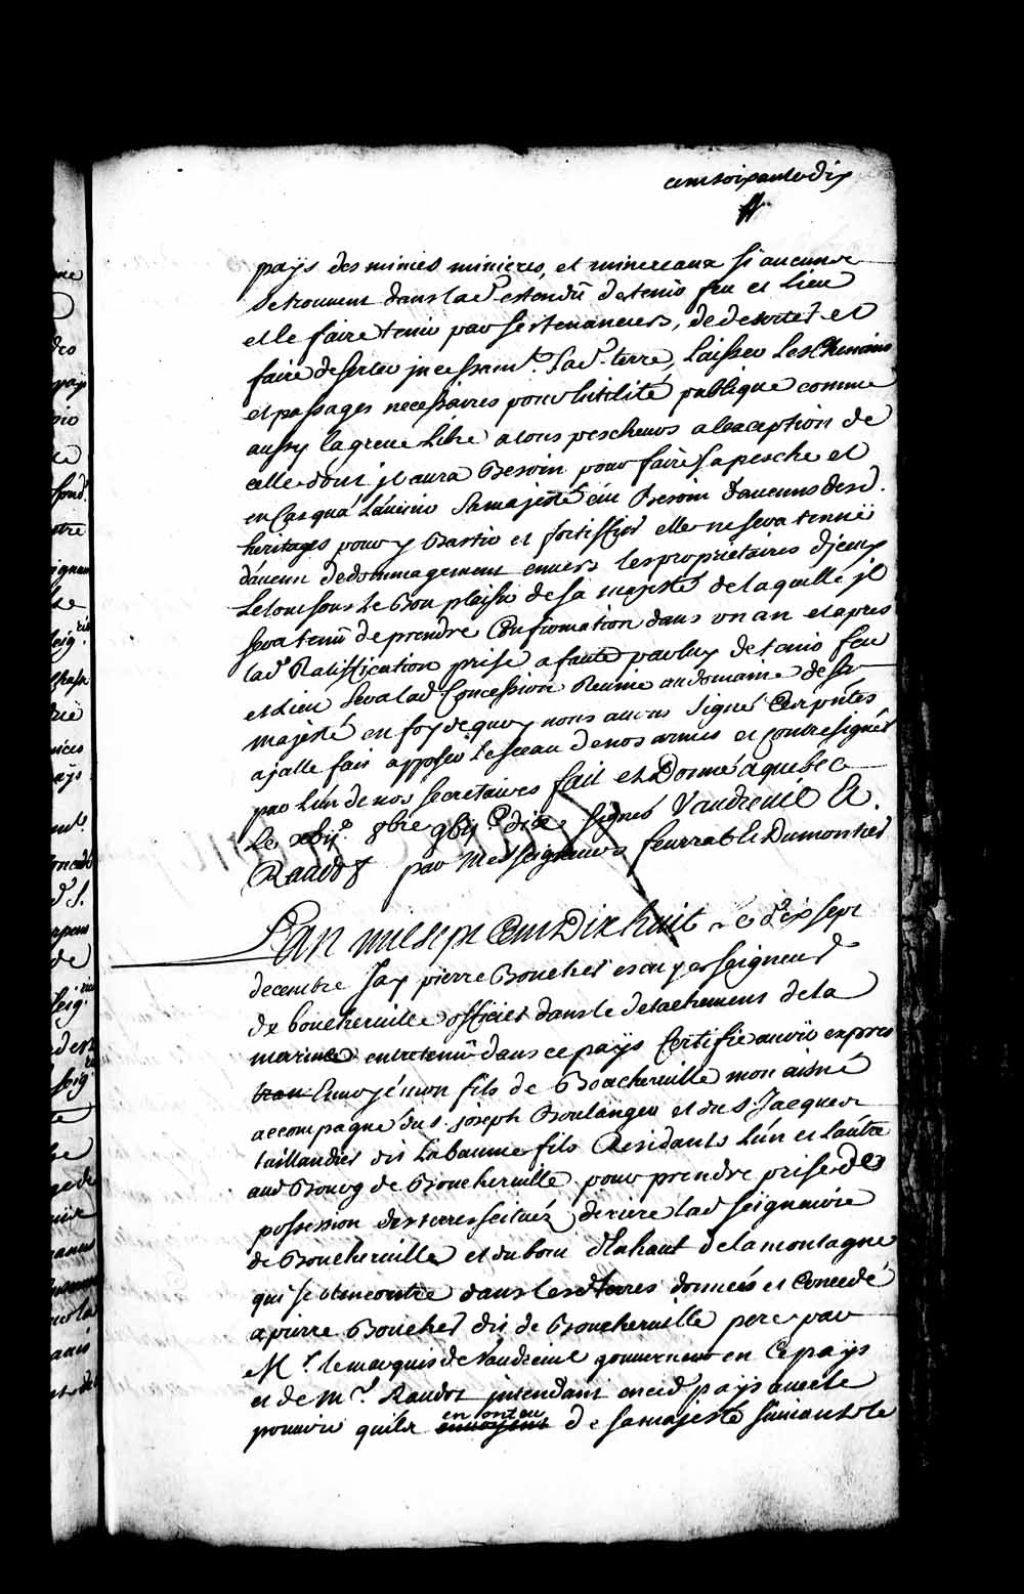 cent soixante dix
païs des mines minieres, et mineraux si aucunes
se trouvent dans lad.e estenduë de tenir feu et lieu
et le faire tenir par ses tenanciers, de deserter et
faire deserter incessam.t lad.e terre, laisser les Chemins
et passages necessaires pour lutilité publique comme
aussy la greve libre a tous pescheurs a lexception de
celle dont jl aura Besoin pour faire sa pesche et
en Cas qua Lavenir Sa majesté eut Besoin daucuns desd.
heritages pour y Bastir et fortiffier elle ne sera tenuë
d'aucun dedommagement envers les proprietaires djceux
Le tout sous Le Bon plaisir de sa majesté de laquelle jl
sera tenu de prendre Confirmation dans un an et apres
lad.e Ratiffication prise a faute par luy de tenir feu
et Lieu sera lad. Concession Reunie au domaine de sa
majesté en foy de quoy nous avons signé Ces pntes
ajcelle fait apposer le sceau de nos armes et contresigner
par L'un de nos secretaires fait et Donné a quebec
Le 8bre signé Vaudreuil &
Raudot par Messeigneurs feurrat Le Dumontier
Lan mil sept Cent Dix huit Le dix sept
decembre Jay pierre Boucher escuyer seigneur
de boucherville officier dans le detachement de la
marine entretenu dans ce païs Certifie avoir expres
Envoyé mon fils de Boucherville mon aisné
accompagné du s. joseph Boulanger et du s. Jacques
taillandier dit Labaume fils Residants L'un et Lautre
aud Bourg de Boucherville pour prendre prise de
possession des terres scituéz deriere lad seigneurie
de Boucherville et du bout dEnhaut de la montagne
qui se Rencontre dans lesd terres données et Concedé
a pierre Boucher dit de Boucherville pere par
M.r le marquis de Vaudreuil gouverneur en Ce païs
et de M.r Raudot jntendant en ced païs avec le
pouvoir quils en ont eu de sa majesté suivant le